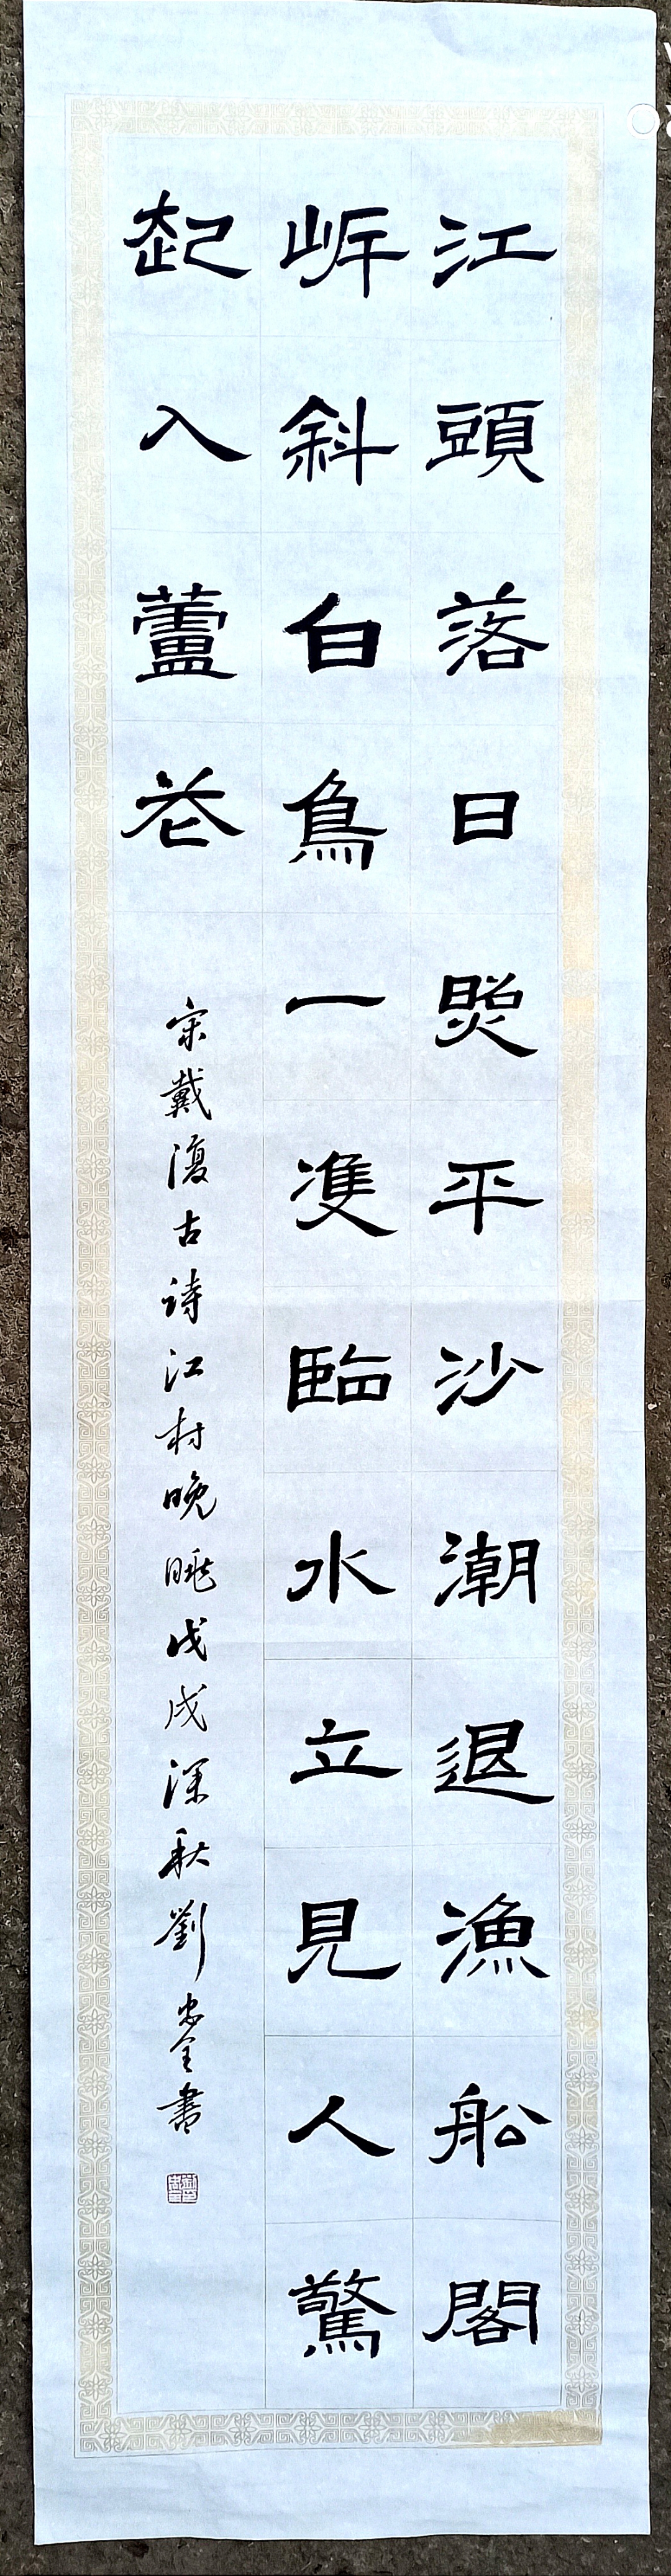 江頭落日照平沙潮退漁船閣
岸斜白鳥一雙臨水立見人驚
起入蘆花
宋戴復古詩江村晚眺戊戌深秋劉忠全書